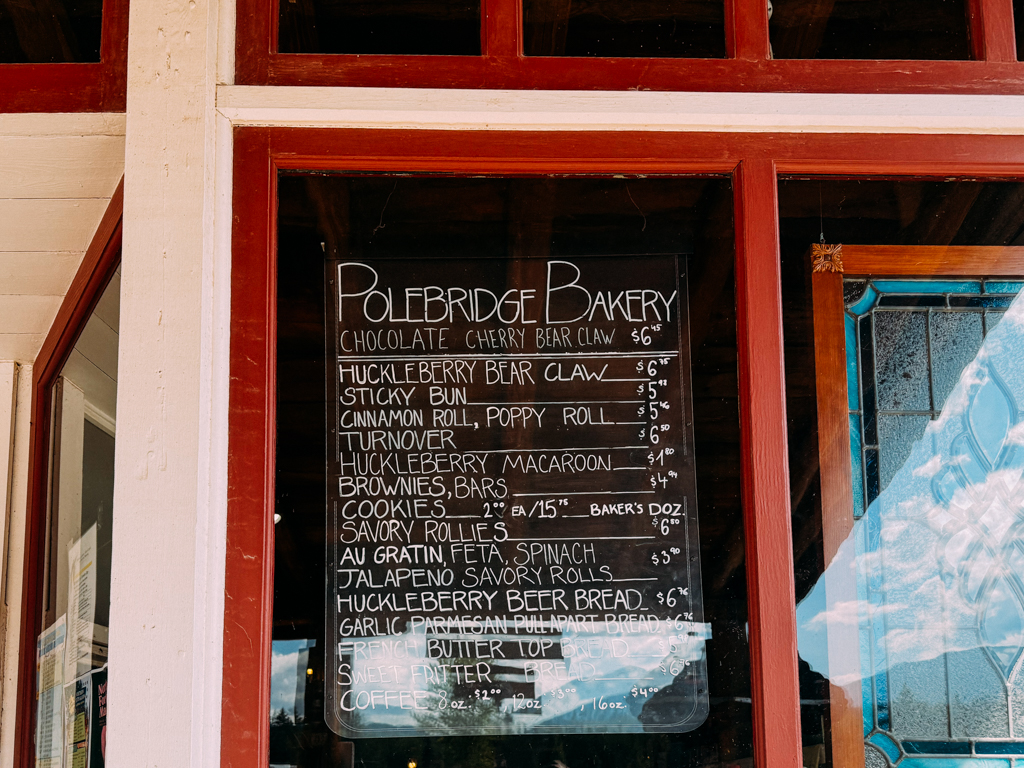 POLEBRIDGE BAKERY
CHOCOLATE CHERRY BEAR CLAW $6.45
HUCKLEBERRY BEAR CLAW $6.75
STICKY BUN $5.98
CINNAMON ROLL, POPPY ROLL $5.46
TURNOVER $6.50
HUCKLEBERRY MACAROON $1.80
BROWNIES, BARS $4.94
COOKIES 2.00 EA/15.75 BAKER'S DOZ.
SAVORY ROLLIES $6.50
AU GRATIN, FETA, SPINACH $3.90
JALAPENO SAVORY ROLLS
HUCKLEBERRY BEER BREAD $6.76
GARLIC PARMESAN PULL APART BREAD $6.76
FRENCH BUTTER TOP BREAD
SWEET FRITTER BREAD
COFFEE 8oz. $2.00, 12oz $3.00, 16oz. $4.00